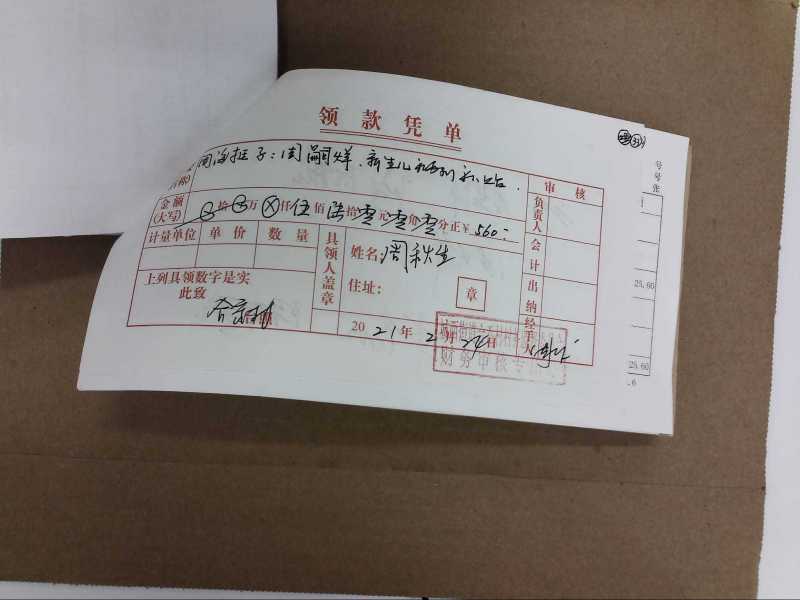 领款凭单
周海 子:周嗣烊.新生儿福利补贴.
审核
金额(大写) ⊗拾⊗万⊗仟伍佰陆拾零元零角零分正¥560:
负责人
计量单位 单价 数量
具领人盖章
姓名:周秋生
会计
上列具领数字是实
此致
住址:
章
出纳
2021年2月24日
经手人
财务审核专
号
号
张
25.60
25.60
.6